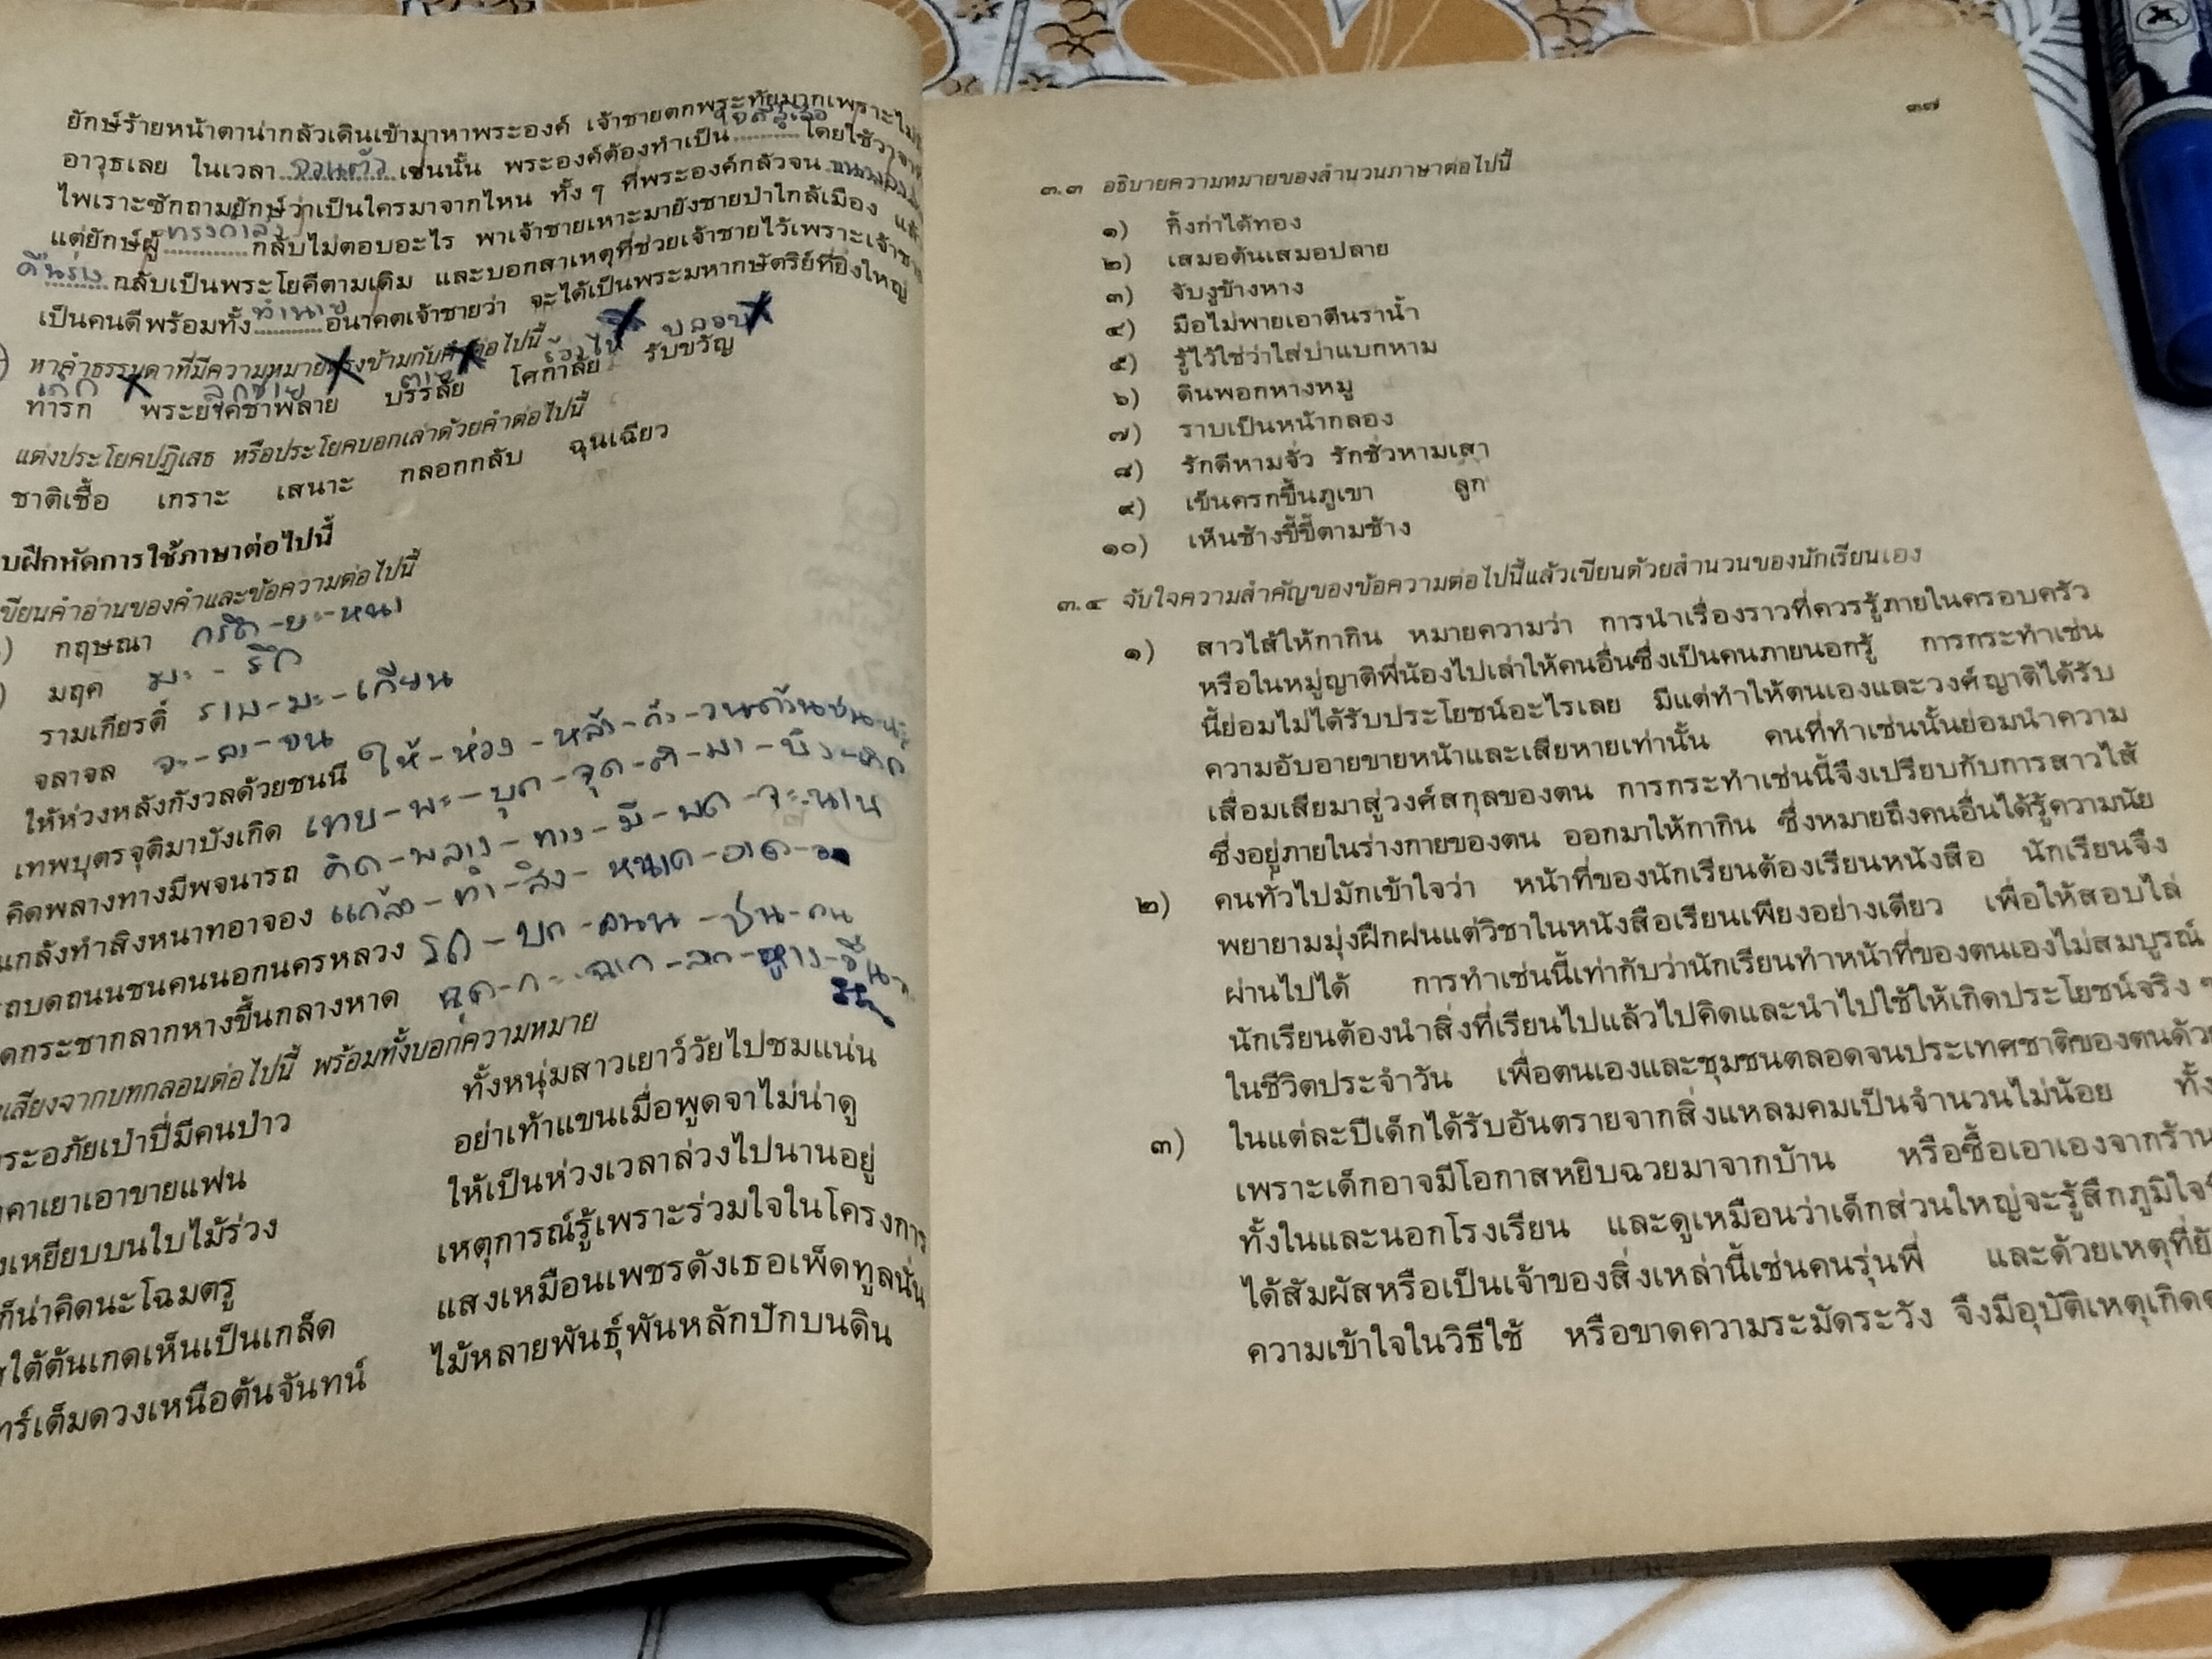 ยักษ์ร้ายหน้าตาน่ากลัวเดินเข้ามาหาพระองค์ เจ้าชายตกพระทัยมากเพราะไม่
อาวุธเลย ในเวลา จวนตัว เช่นนั้น พระองค์ต้องทำเป็น ใจดีสู้เสือ โดยใช้วาจา
ไพเราะซักถามยักษ์ว่าเป็นใครมาจากไหน ทั้ง ๆ ที่พระองค์กลัวจน
แต่ยักษ์ผู้ ทรงกำลัง กลับไม่ตอบอะไร พาเจ้าชายเหาะมายังชายป่าใกล้เมือง แล้ว
คืนร่าง กลับเป็นพระโยคีตามเดิม และบอกสาเหตุที่ช่วยเจ้าชายไว้เพราะเจ้าชาย
เป็นคนดีพร้อมทั้ง ทำนาย อนาคตเจ้าชายว่า จะได้เป็นพระมหากษัตริย์ที่ยิ่งใหญ่
หาคำธรรมดาที่มีความหมายตรงข้ามกับคำต่อไปนี้
เด็ก ลูกชาย ตาย ร้องไห้ ปลอบ
ทารก พระยาคชาพลาย บรรลัย โศกาลัย รับขวัญ
แต่งประโยคปฏิเสธ หรือประโยคบอกเล่าด้วยคำต่อไปนี้
ชาติเชื้อ เกราะ เสนาะ กลอกกลับ ฉุนเฉียว
บฝึกหัดการใช้ภาษาต่อไปนี้
ขียนคำอ่านของคำและข้อความต่อไปนี้
กฤษณา กริด-ษะ-หนา
มฤค มะ-รึก
รามเกียรติ์ ราม-มะ-เกียน
จลาจล จะ-ลา-จน
ให้ห่วงหลังกังวลด้วยชนนี ให้-ห่วง-หลัง-กัง-วนด้วนชนนะ
เทพบุตรจุติมาบังเกิด เทบ-พะ-บุด-จุด-ติ-มา-บัง-เกิด
คิดพลางทางมีพจนารถ คิด-พลาง-ทาง-มี-พด-จะนาน
แกล้งทำสิงหนาทอาจอง แกล้ง-ทำ-สิง-หนาด-อาด-
ถบดถนนชนคนนอกนครหลวง รถ-บด-ถนน-ชน-คน
ดกระชากลากหางขึ้นกลางหาด ฉุด-กะ-ฉาก-ลาก-หาง-ขึ้น
เสียงจากบทกลอนต่อไปนี้ พร้อมทั้งบอกความหมาย
ระอภัยเป่าปี่มีคนป่าว ทั้งหนุ่มสาวเยาว์วัยไปชมแน่น
คาเยาเอาขายแฟน อย่าเท้าแขนเมื่อพูดจาไม่น่าดู
เหยียบบนใบไม้ร่วง ให้เป็นห่วงเวลาล่วงไปนานอยู่
ก็น่าคิดนะโฉมตรู เหตุการณ์รู้เพราะร่วมใจในโครงการ
ใต้ต้นเกดเห็นเป็นเกล็ด แสงเหมือนเพชรดังเธอเพ็ดทูลนั่น
ทร์เต็มดวงเหนือต้นจันทน์ ไม้หลายพันธุ์พันหลักปักบนดิน
๓๗
๓.๓ อธิบายความหมายของสำนวนภาษาต่อไปนี้
๑) กิ้งก่าได้ทอง
๒) เสมอต้นเสมอปลาย
๓) จับงูข้างหาง
๔) มือไม่พายเอาตีนราน้ำ
๕) รู้ไว้ใช่ว่าใส่บ่าแบกหาม
๖) ดินพอกหางหมู
๗) ราบเป็นหน้ากลอง
๘) รักดีหามจั่ว รักชั่วหามเสา
๙) เข็นครกขึ้นภูเขา ลูก
๑๐) เห็นช้างขี้ขี้ตามช้าง
๓.๔ จับใจความสำคัญของข้อความต่อไปนี้แล้วเขียนด้วยสำนวนของนักเรียนเอง
๑) สาวไส้ให้กากิน หมายความว่า การนำเรื่องราวที่ควรรู้ภายในครอบครัว
หรือในหมู่ญาติพี่น้องไปเล่าให้คนอื่นซึ่งเป็นคนภายนอกรู้ การกระทำเช่น
นี้ย่อมไม่ได้รับประโยชน์อะไรเลย มีแต่ทำให้ตนเองและวงศ์ญาติได้รับ
ความอับอายขายหน้าและเสียหายเท่านั้น คนที่ทำเช่นนั้นย่อมนำความ
เสื่อมเสียมาสู่วงศ์สกุลของตน การกระทำเช่นนี้จึงเปรียบกับการสาวไส้
ซึ่งอยู่ภายในร่างกายของตน ออกมาให้กากิน ซึ่งหมายถึงคนอื่นได้รู้ความนัย
๒) คนทั่วไปมักเข้าใจว่า หน้าที่ของนักเรียนต้องเรียนหนังสือ นักเรียนจึง
พยายามมุ่งฝึกฝนแต่วิชาในหนังสือเรียนเพียงอย่างเดียว เพื่อให้สอบไล่
ผ่านไปได้ การทำเช่นนี้เท่ากับว่านักเรียนทำหน้าที่ของตนเองไม่สมบูรณ์
นักเรียนต้องนำสิ่งที่เรียนไปแล้วไปคิดและนำไปใช้ให้เกิดประโยชน์จริง ๆ
ในชีวิตประจำวัน เพื่อตนเองและชุมชนตลอดจนประเทศชาติของตนด้วย
๓) ในแต่ละปีเด็กได้รับอันตรายจากสิ่งแหลมคมเป็นจำนวนไม่น้อย ทั้ง
เพราะเด็กอาจมีโอกาสหยิบฉวยมาจากบ้าน หรือซื้อเอาเองจากร้าน
ทั้งในและนอกโรงเรียน และดูเหมือนว่าเด็กส่วนใหญ่จะรู้สึกภูมิใจ
ได้สัมผัสหรือเป็นเจ้าของสิ่งเหล่านี้เช่นคนรุ่นพี่ และด้วยเหตุที่
ความเข้าใจในวิธีใช้ หรือขาดความระมัดระวัง จึงมีอุบัติเหตุเกิด